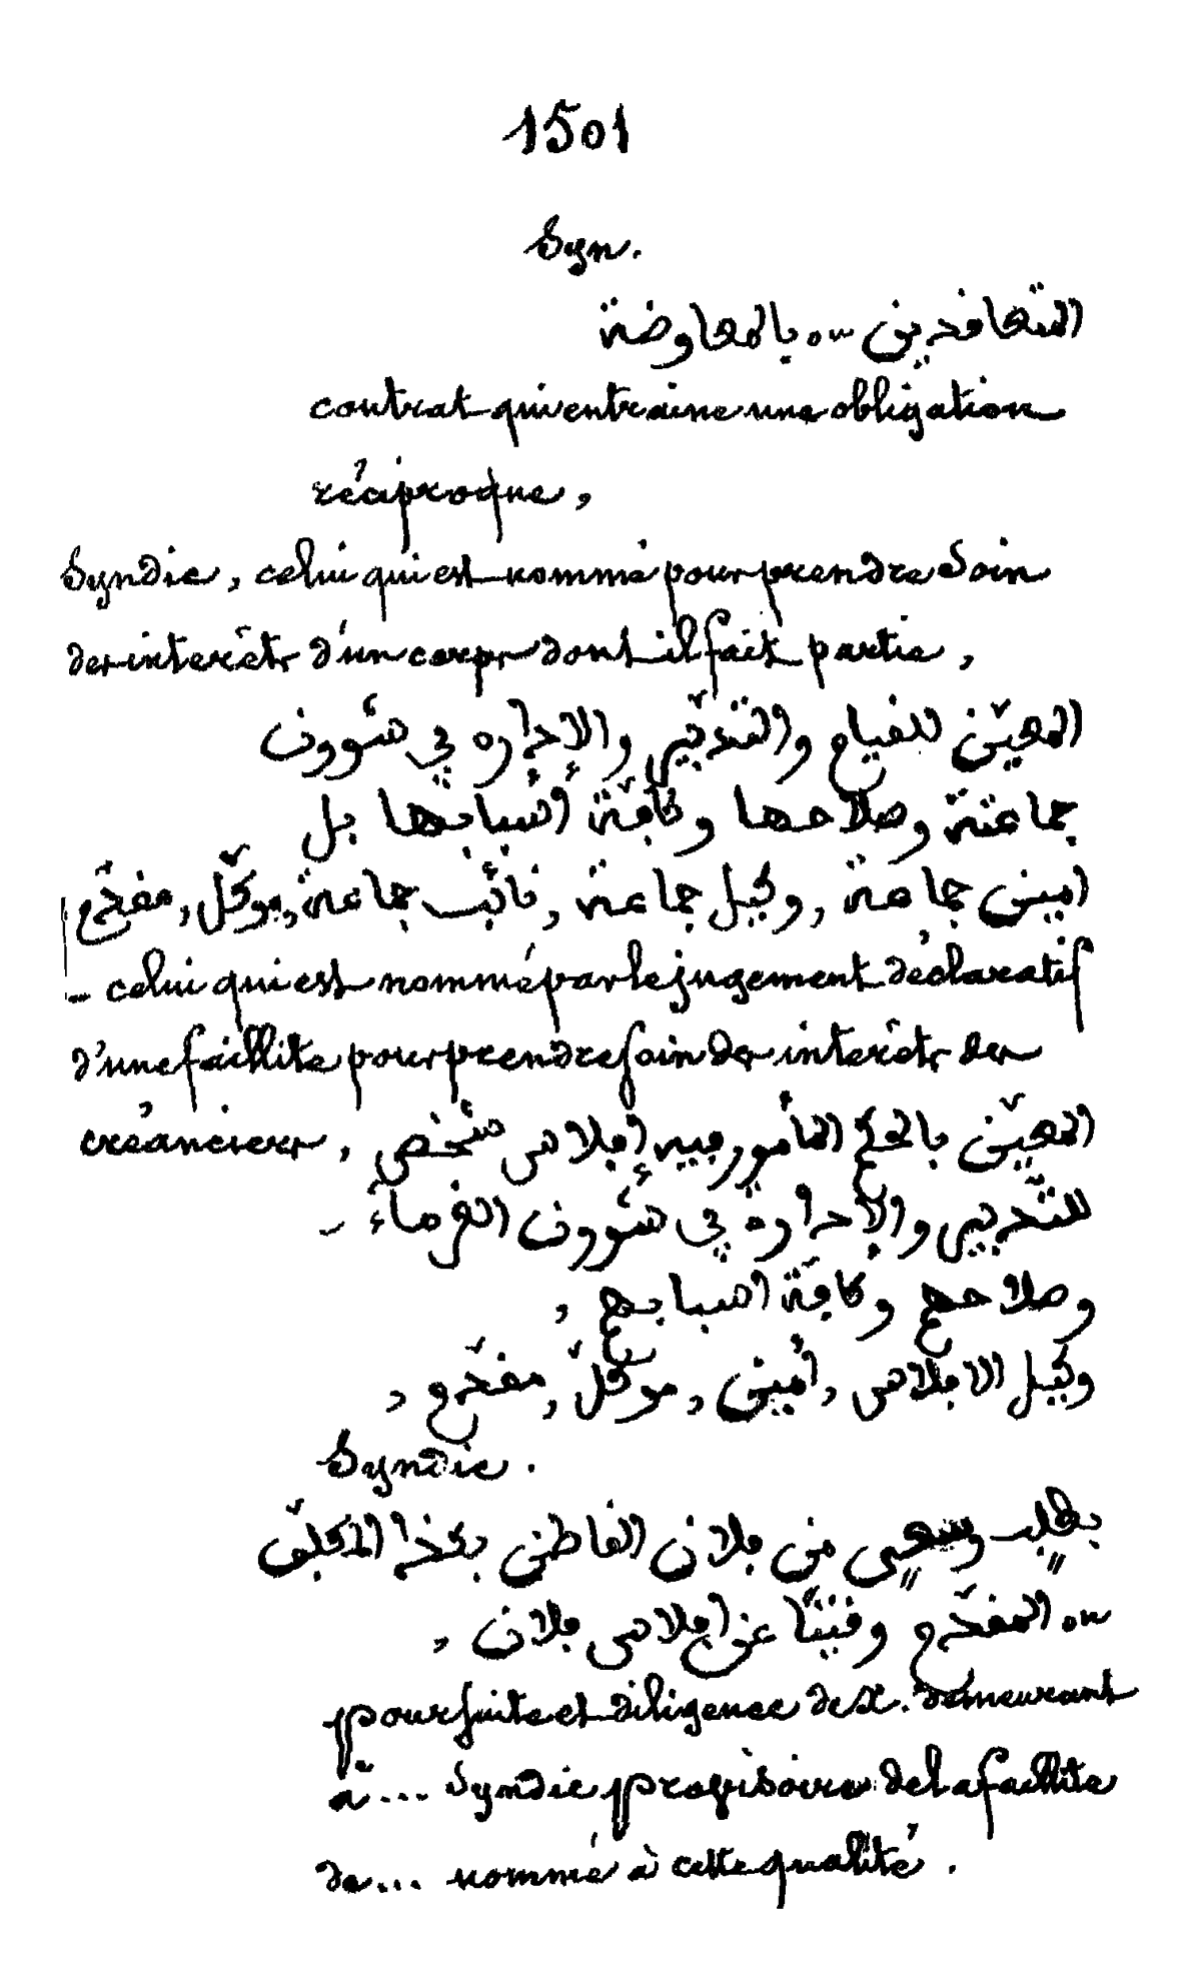 1501
Syn.
المتعاقدين ou بالمعاوضة
contrat qui entraine une obligation
réciproque,
Syndic, celui qui est nommé pour prendre soin
des interêts d'un corps dont il fait partie,
المعيّن للقيام والتدبير والإدارة في شؤون
جماعته وصلاحها وكافّة أسبابها بل
امين جماعة, وكيل جماعة, نائب جماعة, موكّل, مقدّم
- celui qui est nommé par le jugement déclaratif
d'une faillite pour prendre soin des interêts des
créanciers, المعيّن بالحكم المأمور فيه إفلاس شخص
للتّدبير والإدارة في شؤون الغرماء -
وصلاحهم وكافّة اسبابهم,
وكيل الافلاس, أمين, موكّل, مقدّم,
Syndic.
بطلب وسعي من فلان القاطن بكذا المكلّف
ou المقدّم وقتيًّا عن افلاس فلان,
poursuite et diligence de X. demeurant
à... Syndic provisoire de la faillite
de... nommé à cette qualité.